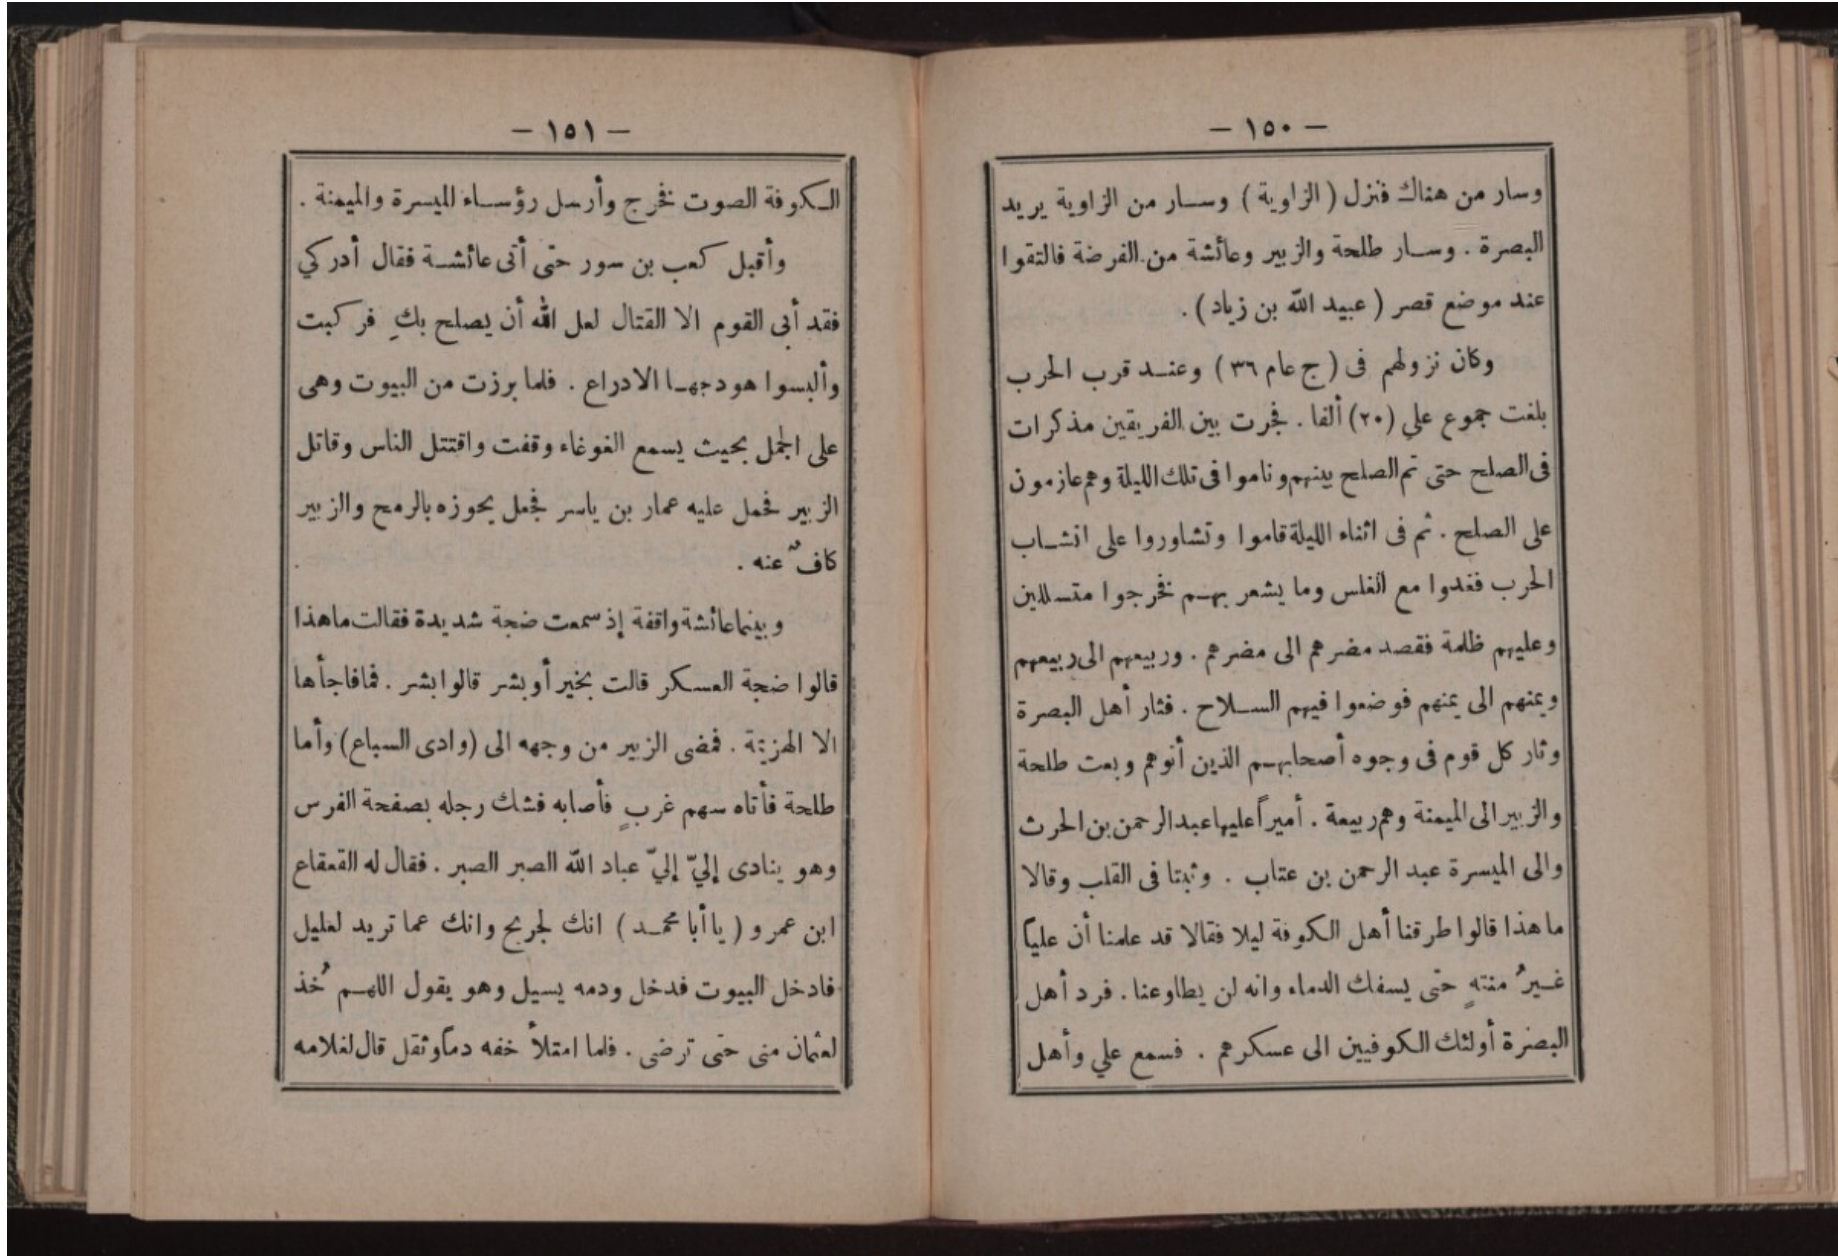 — ١٥٠ —
وسار من هناك فنزل ( الزاوية ) وسار من الزاوية يريد
البصرة . وسار طلحة والزبير وعائشة من الفرضة فالتقوا
عند موضع قصر ( عبيد الله بن زياد ) .
وكان نزولهم فى ( ج عام ٣٦ ) وعند قرب الحرب
بلغت جموع علي (٢٠) ألفا . فجرت بين الفريقين مذكرات
فى الصلح حتى تم الصلح بينهم وناموا فى تلك الليلة وهم عازمون
على الصلح . ثم فى اثناء الليلة قاموا وتشاوروا على انشاب
الحرب فغدوا مع الغلس وما يشعر بهم فخرجوا متسللين
وعليهم ظلمة فقصد مضرهم الى مضرهم . وربيعهم الى ربيعهم
ويمنهم الى يمنهم فوضعوا فيهم السلاح . فثار أهل البصرة
وثار كل قوم فى وجوه أصحابهم الذين أتوهم وبعث طلحة
والزبير الى الميمنة وهم ربيعة . أميراً عليها عبد الرحمن بن الحرث
والى الميسرة عبد الرحمن بن عتاب . وثبتا فى القلب وقالا
ما هذا قالوا طرقنا أهل الكوفة ليلا فقالا قد علمنا أن علياً
غيرُ منتهٍ حتى يسفك الدماء وانه لن يطاوعنا . فرد أهل
البصرة أولئك الكوفيين الى عسكرهم . فسمع علي وأهل
— ١٥١ —
الكوفة الصوت فخرج وأرسل رؤساء الميسرة والميمنة .
وأقبل كعب بن سور حتى أتى عائشة فقال أدركي
فقد أبى القوم الا القتال لعل الله أن يصلح بكِ فركبت
وألبسوا هودجها الادراع . فلما برزت من البيوت وهى
على الجمل بحيث يسمع الغوغاء وقفت واقتتل الناس وقاتل
الزبير فحمل عليه عمار بن ياسر فجعل يحوزه بالرمح والزبير
كافٌ عنه .
وبينما عائشة واقفة إذ سمعت ضجة شديدة فقالت ماهذا
قالوا ضجة العسكر قالت بخير أو بشر قالوا بشر . فما فاجأها
الا الهزيمة . فمضى الزبير من وجهه الى (وادى السباع) وأما
طلحة فأتاه سهم غربٍ فأصابه فشك رجله بصفحة الفرس
وهو ينادى إليّ إليّ عباد الله الصبر الصبر . فقال له القعقاع
ابن عمرو ( يا أبا محمد ) انك لجريح وانك عما تريد لعليل
فادخل البيوت فدخل ودمه يسيل وهو يقول اللهم خُذ
لعثمان منى حتى ترضى . فلما امتلأ خفه دماً وثقل قال لغلامه